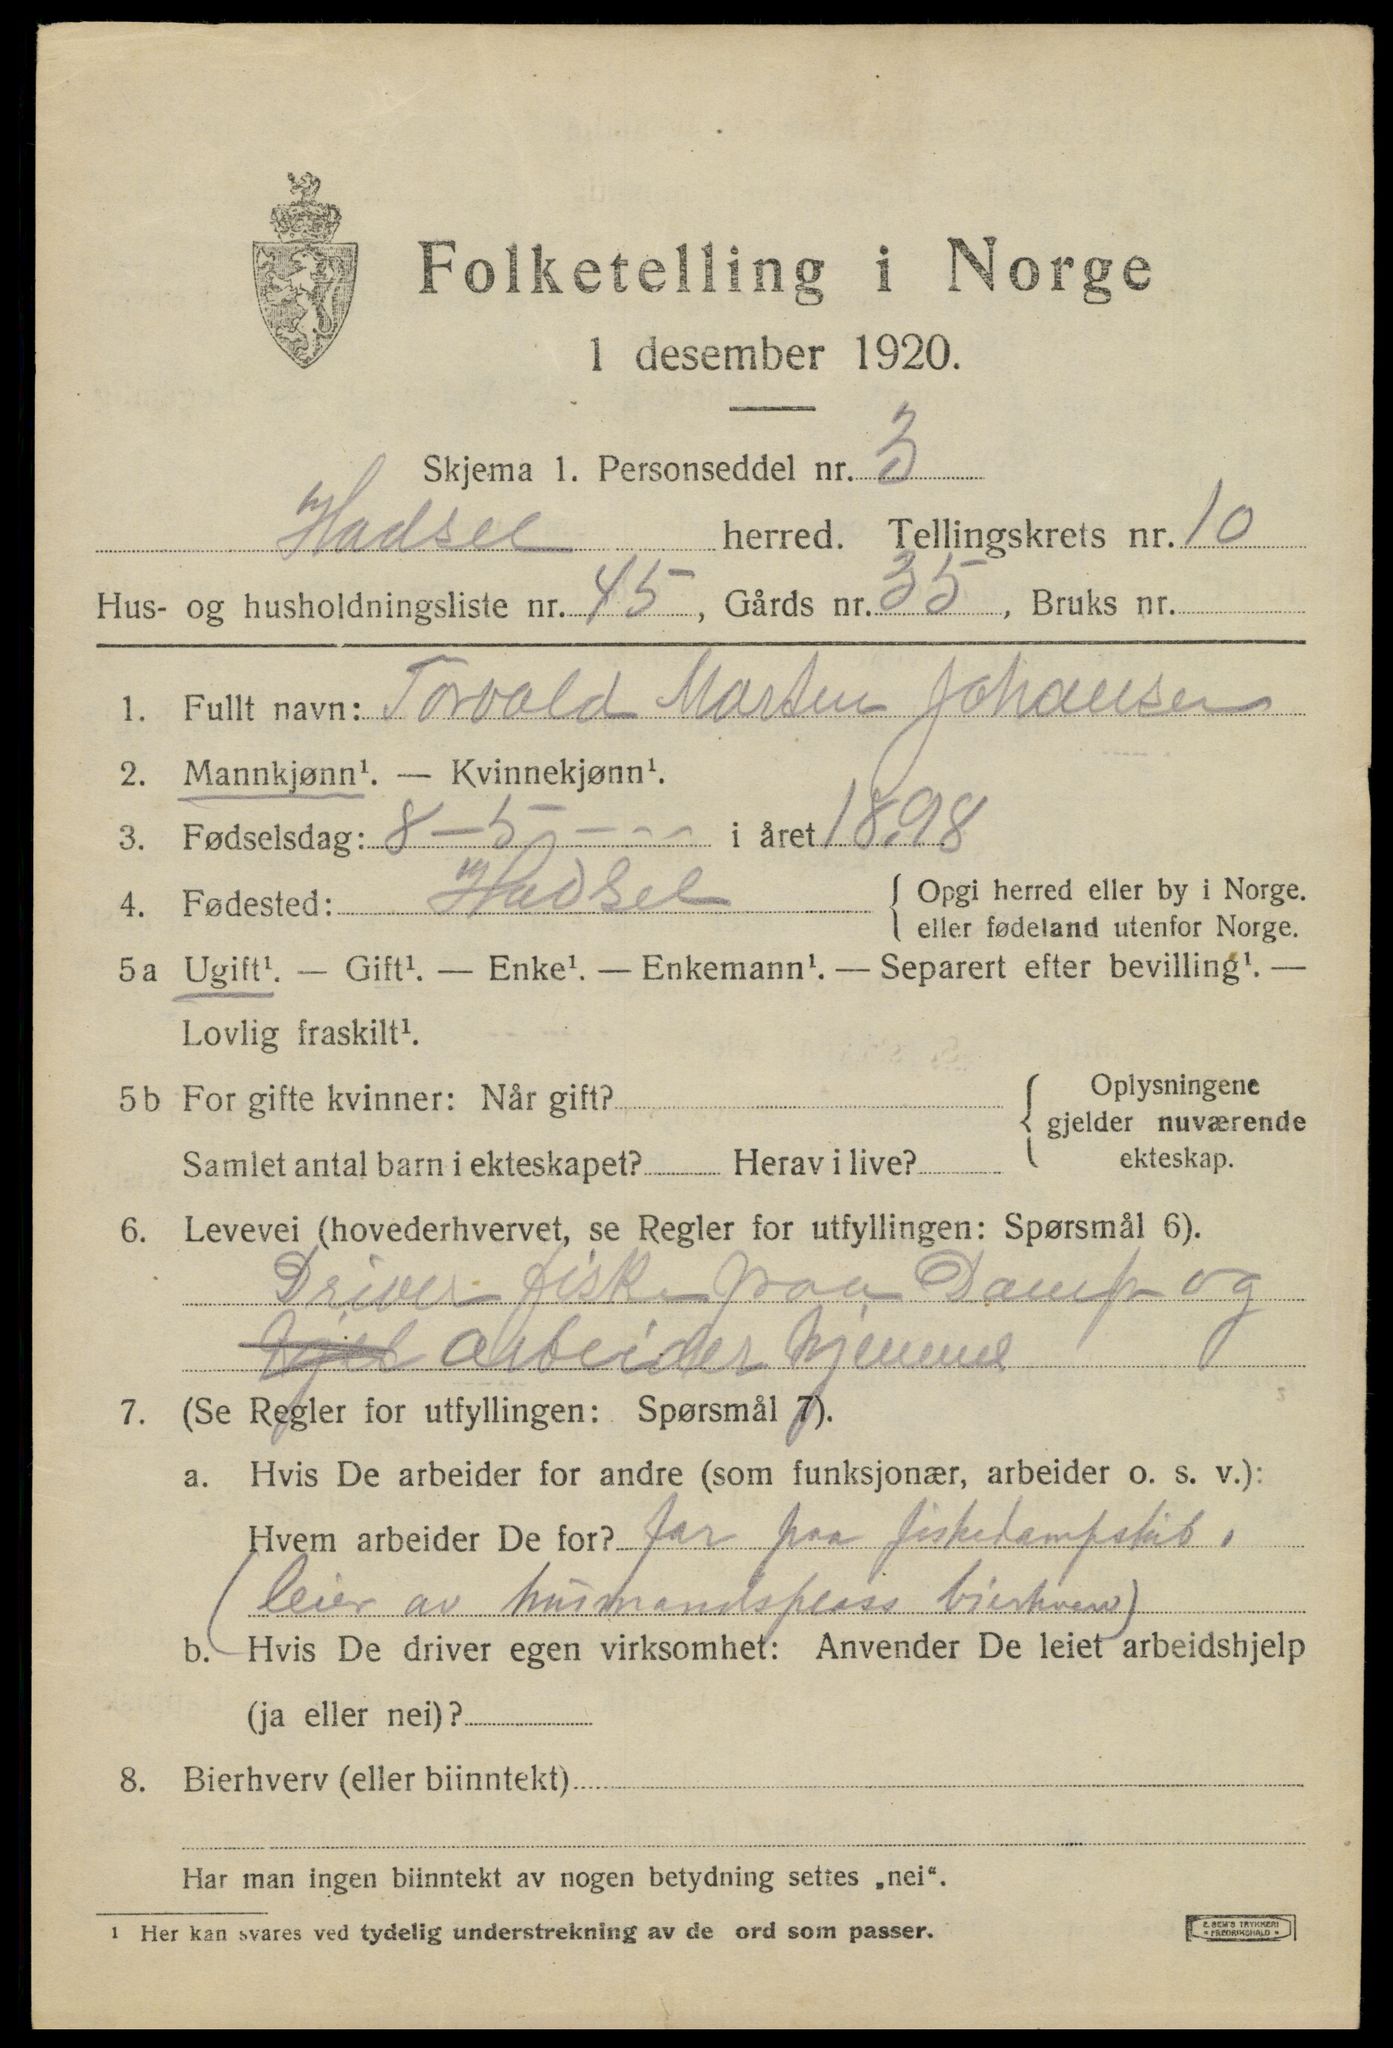 Folketelling i Norge
1 desember 1920.
Skjema 1. Personseddel nr. 3
Hadsel herred. Tellingskrets nr. 10
Hus- og husholdningsliste nr. 45, Gårds nr. 35, Bruks nr.
1. Fullt navn: Torvald Martin Johansen
2. Mannkjønn¹. — Kvinnekjønn¹.
3. Fødselsdag: 8 – 5 – – – i året 1898
4. Fødested: Hadsel { Opgi herred eller by i Norge.
eller fødeland utenfor Norge.
5a Ugift¹. — Gift¹. — Enke¹. — Enkemann¹. — Separert efter bevilling¹. —
Lovlig fraskilt¹.
5b For gifte kvinner: Når gift? { Oplysningene
gjelder nuværende
Samlet antal barn i ekteskapet? Herav i live? ekteskap.
6. Levevei (hovederhvervet, se Regler for utfyllingen: Spørsmål 6).
Driver fiske paa Damp og
arbeider hjemme
7. (Se Regler for utfyllingen: Spørsmål 7).
a. Hvis De arbeider for andre (som funksjonær, arbeider o. s. v.):
Hvem arbeider De for? far paa fiskedampskib,
(leier av husmandsplass bierhverv)
b. Hvis De driver egen virksomhet: Anvender De leiet arbeidshjelp
(ja eller nei)?
8. Bierhverv (eller biinntekt)
Har man ingen biinntekt av nogen betydning settes „nei“.
¹ Her kan svares ved tydelig understrekning av de ord som passer.
E. SEM'S TRYKKERI
* FREDRIKSHALD *